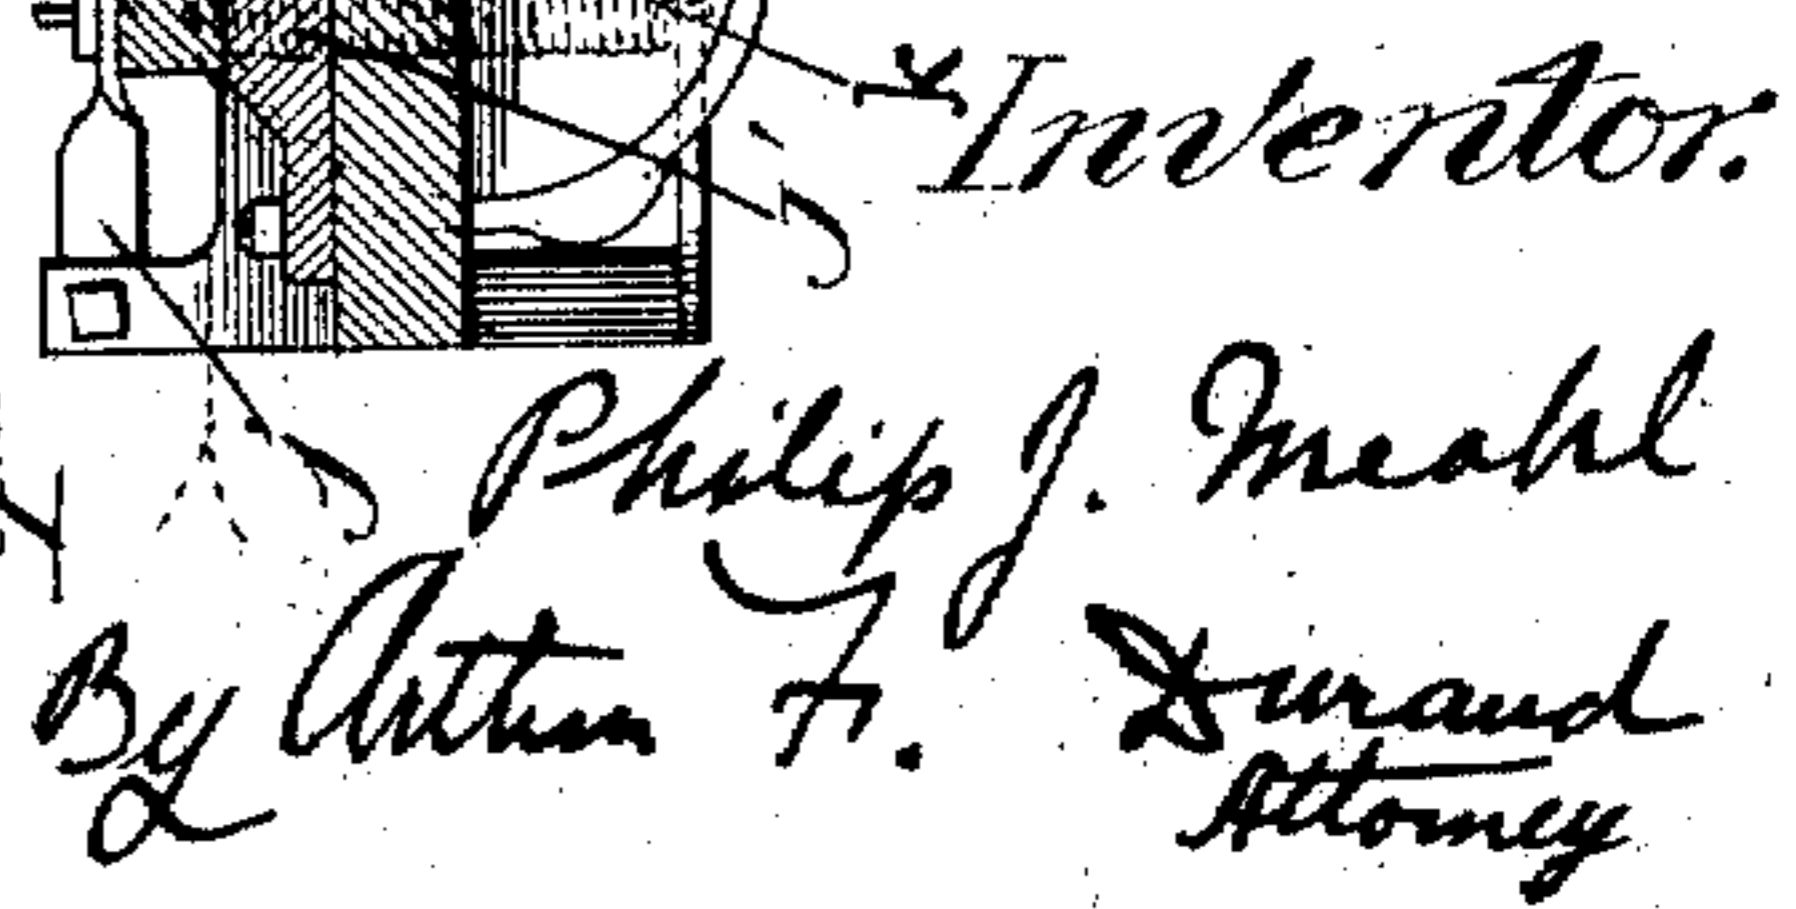 K
Inventor.
J'
J
Y
Philip J. Meahl
By Arthur F. Durand
Attorney